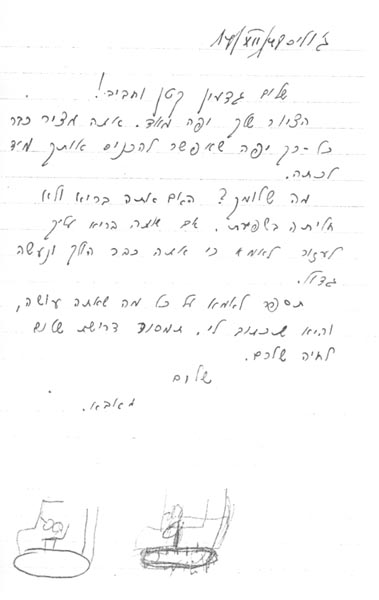 שלום גדעון קטן וחביב!
הציור שלך יפה מאד. אתה מציר כבר
כל-כך יפה שאפשר להכניס אותך מיד
לכתה.
מה שלומך? האם אתה בריא ולא
חליתה בשפעת. אם אתה בריא עליך
לעזור לאמא כי אתה כבר הולך ונעשה
גדול.
תספר לאמא על כל מה שאתה עושה,
והיא תכתוב לי. תמסור דרישת שלום
לחיה שלכם.
שלום
מאבא.